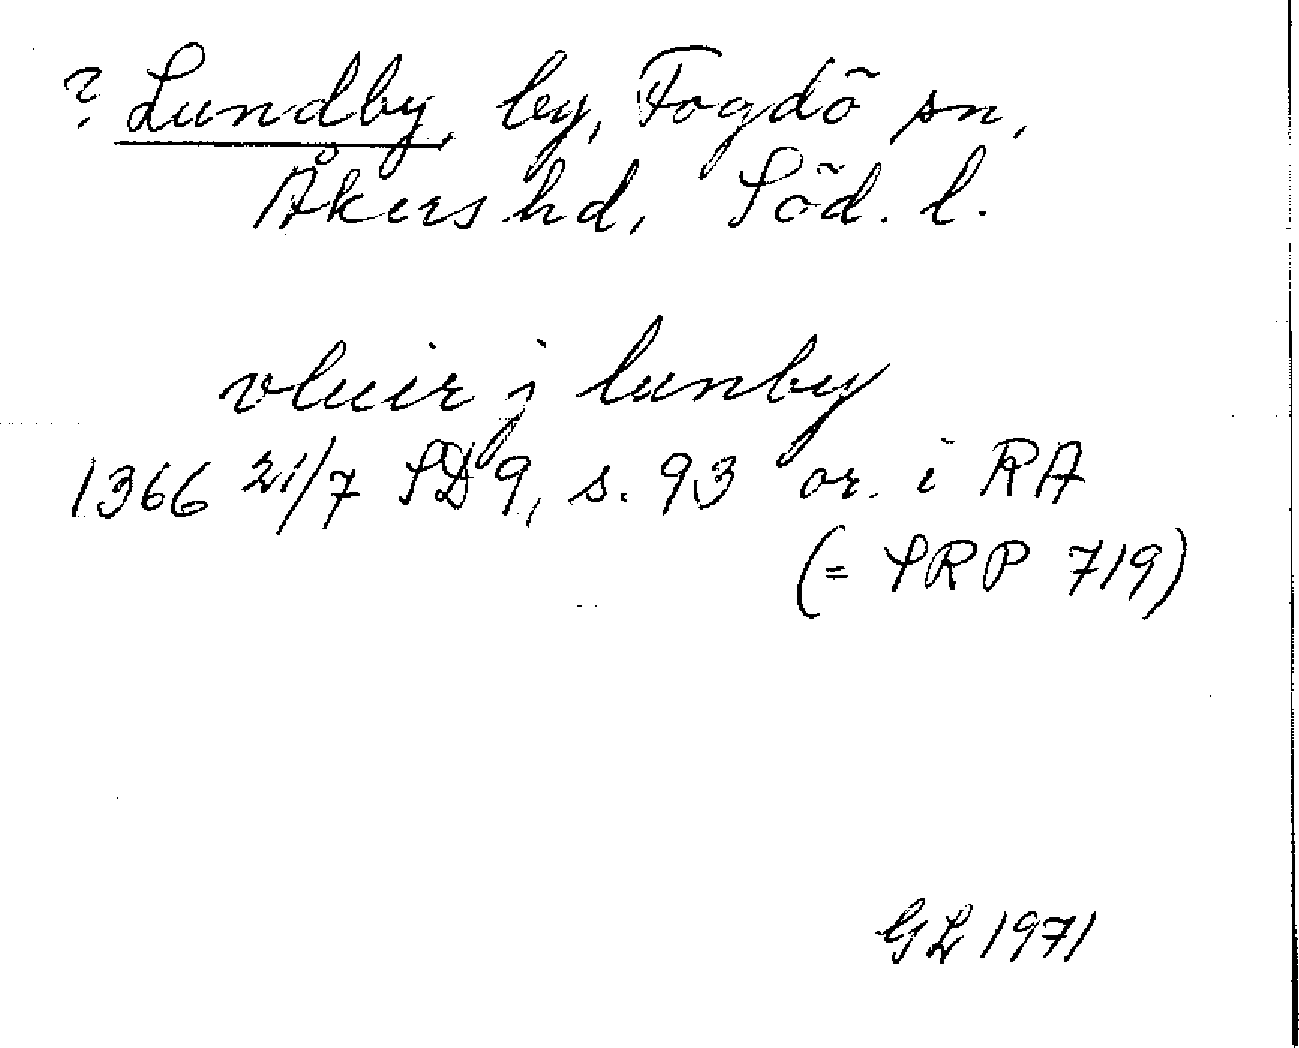 ? Lundby, by, Fogdö sn,
Åkers hd, Söd. l.
vluir j lunby
1366 21/7 SD 9, s. 93 or. i RA
(= SRP 719)
GL 1971